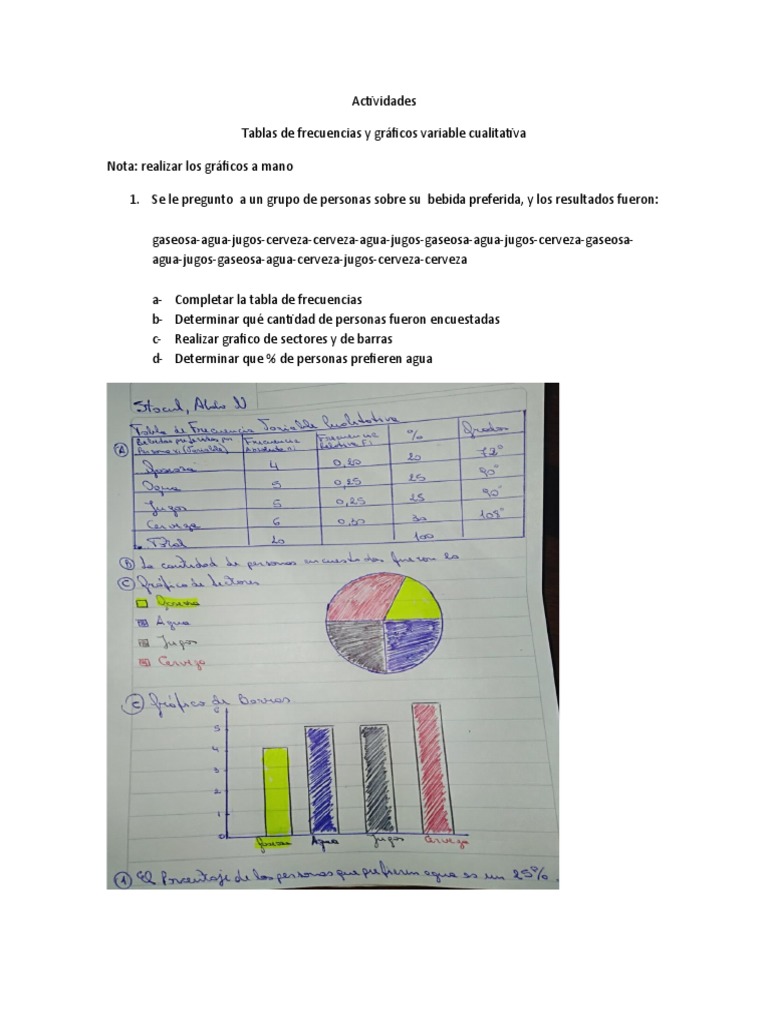 Actividades
Tablas de frecuencias y gráficos variable cualitativa
Nota: realizar los gráficos a mano
1. Se le pregunto a un grupo de personas sobre su bebida preferida, y los resultados fueron:
gaseosa-agua-jugos-cerveza-cerveza-agua-jugos-gaseosa-agua-jugos-cerveza-gaseosa-
agua-jugos-gaseosa-agua-cerveza-jugos-cerveza-cerveza
a- Completar la tabla de frecuencias
b- Determinar qué cantidad de personas fueron encuestadas
c- Realizar grafico de sectores y de barras
d- Determinar que % de personas prefieren agua
Tabla de Frecuencia Variable Cualitativa
A Bebidas preferidas por Frecuencia Frecuencia % Grados
Persona xi (Variable) Absoluta Relativa
Gaseosa 4 0,20 20 72°
Agua 5 0,25 25 90°
Jugos 5 0,25 25 90°
Cerveza 6 0,30 30 108°
Total 20 100
B La cantidad de personas encuestadas fueron 20
C Gráfico de Sectores
Gaseosa
Agua
Jugos
Cerveza
C Gráfico de Barras
6
5
4
3
2
1
0
Gaseosa Agua Jugos Cerveza
El Porcentaje de las personas que prefieren agua es un 25%.